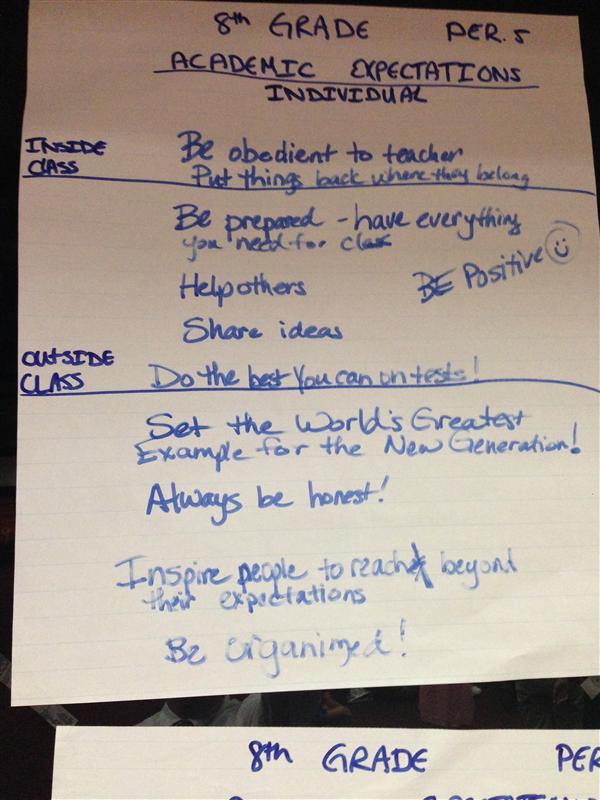 8th GRADE PER. 5
ACADEMIC EXPECTATIONS
INDIVIDUAL
INSIDE
CLASS
Be obedient to teacher
Put things back where they belong
Be prepared - have everything
you need for class
BE Positive
Help others
Share ideas
OUTSIDE
CLASS
Do the best You can on tests!
Set the World's Greatest
Example for the New Generation!
Always be honest!
Inspire people to reach beyond
their expectations
Be organized!
8th GRADE PER